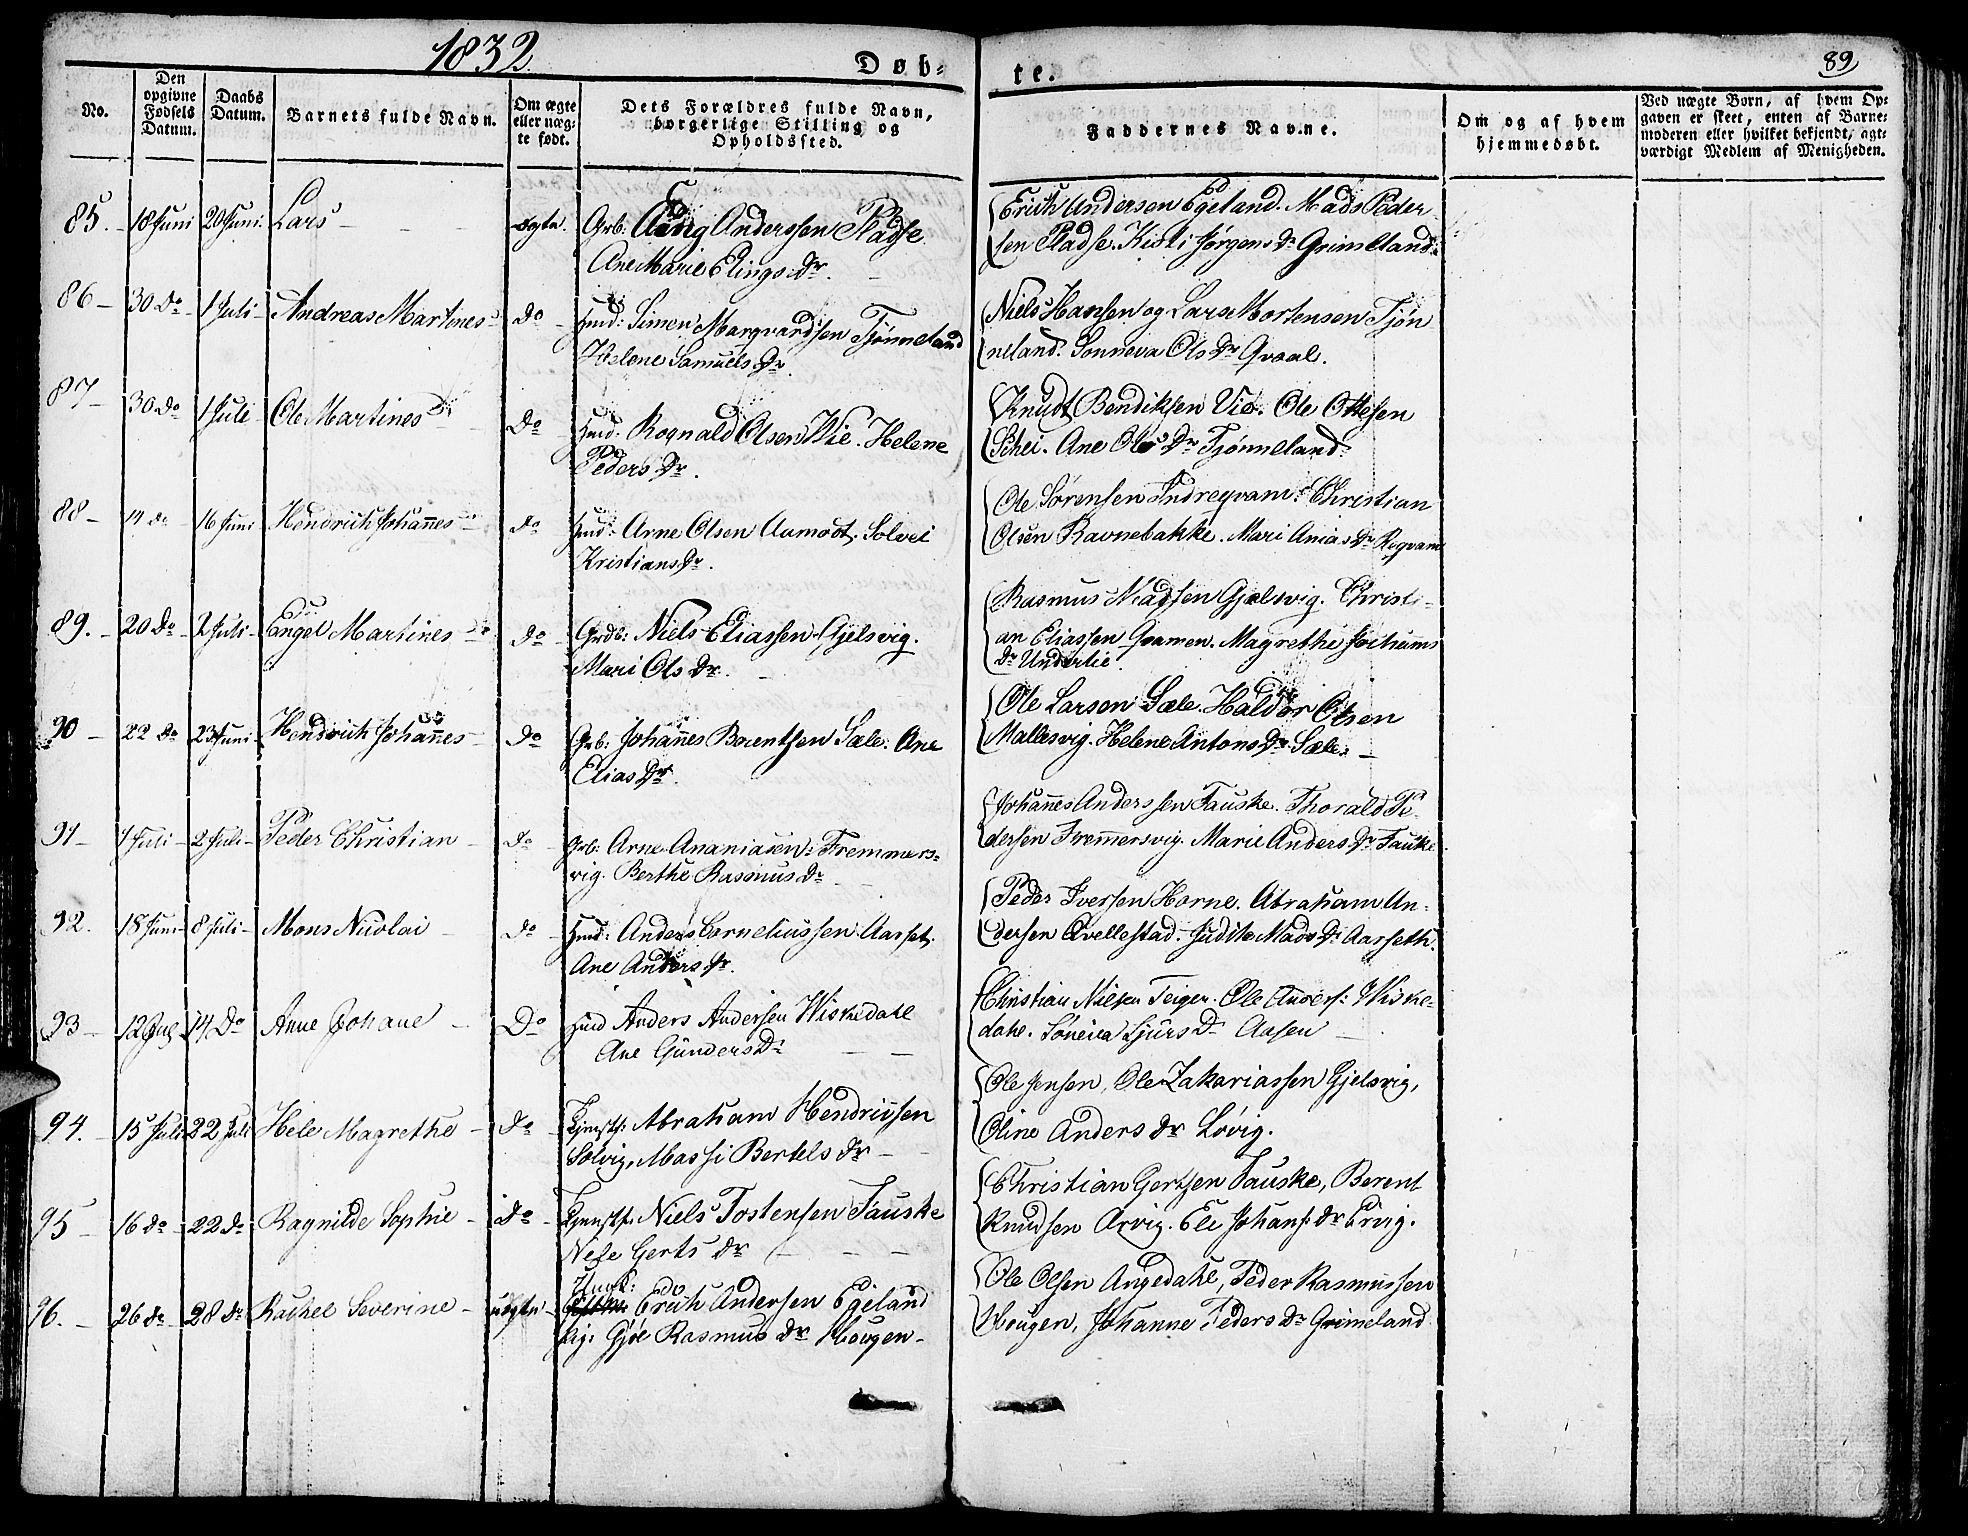 1832
Døb-
te.
89
No.
Den opgivne Fødsels Datum.
Daabs Datum.
Barnets fulde Navn.
Om ægte eller uæg-te født.
Dets Forældres fulde Navn, borgerlige Stilling og Opholdssted.
Faddernes Navne.
Om og af hvem hjemmedøbt.
Ved uægte Børn, af hvem Op-gaven er skeet, enten af Barne-moderen eller hvilket bekjendt, agt-værdigt Medlem af Menigheden.
85. 18 Juni 20 Juni. Lars - - - ægte. Grb: Anderssen Pladse.
Ane Marie Elings Dr. -
Erich Andersen Egeland. Mads Peder-
sen Pladse. Kisti Jørgens Dr Grimeland.
86 - 30 Do 1 Juli - Andreas Martines - Do - Huusd: Simen Marqvardsen Tjønneland
Helene Samuels Dr.
Niels Hansen og Lars Mortensen Tjøn
neland. Sonneva Ols Dr Qvaal.
87 - 30 Do 1 Juli Ole Martines - Do - Huusd: Rognald Olsen Vie. Helene
Peders Dr.
Knudt Bendiksen Vie. Ole Ottesen
Schei. Ane Ols Dr Tjønneland
88 - 14 do 16 Juni Hendrich Johannes - do Huusd: Arne Olsen Aamodt. Solvei
Kristians Dr.
Ole Sørensen Indreqvam. Christian
Olsen Ravnebakke. Mari Anias Dr
89. - 20 Do - 2 Juli - Engel Martines - Do - Grdb: Niels Eliassen Gjelsvig.
Mari Ols Dr. -
Rasmus Madsen Gjelsvig. Christi-
an Eliassen Qvamen. Magrethe Jochums
Dr Underlie.
90 - 22 do 23 Juni - Hendrich Johannes - Do - Grb: Johannes Berentsen Sæle. Ane
Elias Dr.
Ole Larsen Sæle. Haldor Olsen
Mallesvig. Helene Antons Dr Sæle. -
91 - 1 Juli - 2 Juli - Peder Christian - Do - Grb: Arne Ananiasen Fremmers-
vig. Berthe Rasmus Dr - -
Johannes Anderssen Fauske. Thorald Pe-
dersen Fremmersvig. Marie Anders Dr Fauske.
92. 18 Juni 8 Juli - Mons Nicolai - do - Huusd: Anders Corneliussen Aarset.
Ane Anders Dr.
Peder Iversen Horne. Abraham An-
dersen Qvellestad. Judite Mads Dr Aarseth.
93 - 12 Jul - 14 Do Anne Johane - Do - Huusd Anders Andersen Wiskedale
Ane Gunders Dr - -
Christian Nielsen Teigen. Ole Anders: Wiske-
dale. Siurs Dr Aasen -
94. - 15 Juli 22 Juli Hele Magrethe - do - Abraham Hendricsen
Solvig. Massi Bertels Dr - -
Ole Jensen, Ole Zakariassen Gjelsvig,
Oline Anders Dr Løvig.
95 - 16 do - 22 Do Ragnilde Sophie - Do - Niels Tostensen Fauske
Gerts Dr - - -
Christian Gertsen Fauske, Berent
Knudsen Arvig. Eli Johans: Dr Ervig.
96. - 26 do - 28 Do Rachel Severine - uægte - Erich Andersen Egeland
Pig: Gjøe Rasmus Dr Hougen -
Ole Olsen Angedahl, Peder Rasmussen
Hougen, Johanne Peders Dr Grimeland